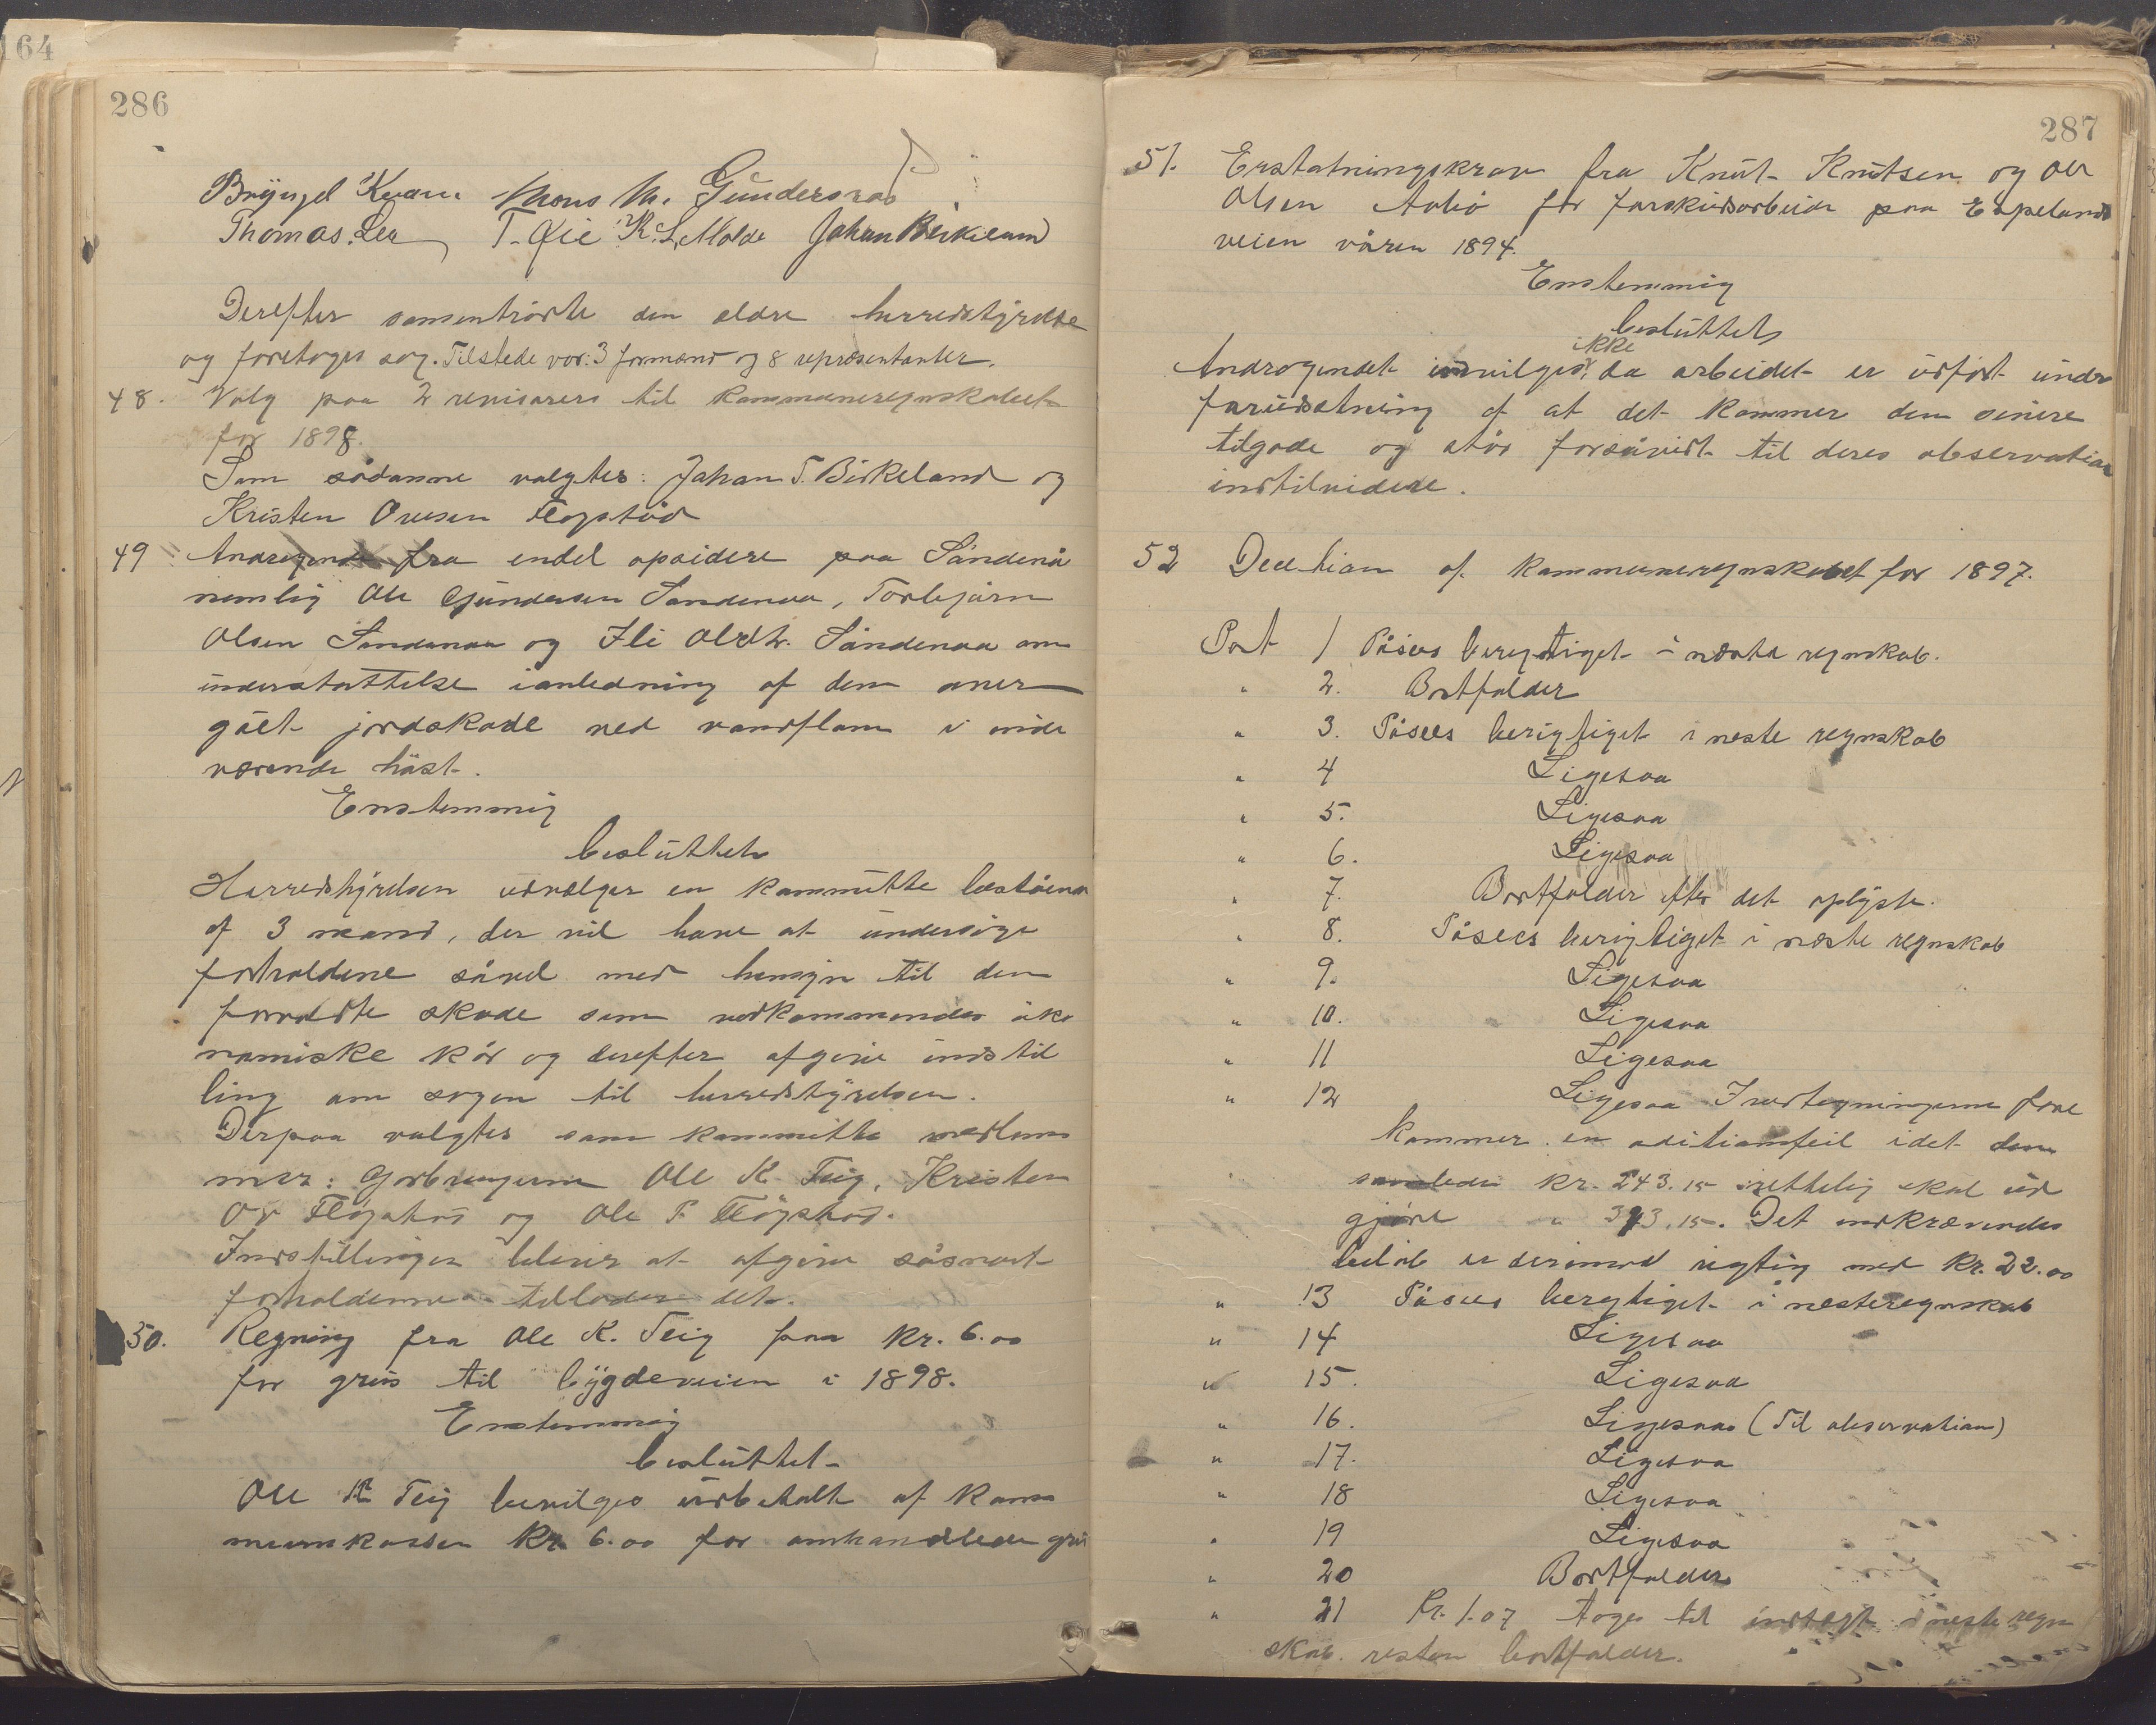 164
286
Thomas M. Gundersrød
Thomas Lea T. Øie K. L. Molde Johan Birkeland
Derefter sammentrådte den ældre herredstyrelse
og foretoges sag. Tilstede var: 3 formænd og 8 repræsentanter.
48. Valg paa 2 revisorer til kommuneregnskabet
for 1898.
Som sådanne valgtes: Johan T. Birkeland og
Kristen Ovesen Fløgstad
49 Andragende fra endel opsidere paa Sandenå
nemlig Ole Gundersen Sandenaa, Torbjørn
Olsen Sandenaa og Ole Oldtr. Sandenaa om
understøttelse ianledning af dem over
gået jordskade ved vandflom i inde
værende høst.
Enstemmig
besluttet
Herredstyrelsen udvælger en kommitte bestående
af 3 mænd, der vil have at undersøge
forholdene såvel med hensyn til den
forvoldte skade som vedkommendes øko
nomiske kår og derefter afgive indstil
ling om sagen til herredstyrelsen.
Derpaa valgtes som kommitte medlem
mer: Gårbrugerne Ole K. Teig, Kristen
Ov Fløgstad og Ole P. Fløgstad.
Indstillingen bliver at afgive såsnart
forholdene tillader det.
50. Regning fra Ole K. Teig paa kr. 6.00
for grus til bygdeveien i 1898.
Enstemmig
besluttet
Ole K Teig bevilges udbetalt af kom
munekassen kr 6.00 for omhandlede grus
287
51. Erstatningskrav fra Knut Knutsen og Ole
Olsen for forskudsarbeide paa Espelands
veien våren 1894.
Enstemmig
besluttet
ikke
Andragendet indvilges, da arbeidet er udført under
forudsetning af at det kommer dem senere
tilgode og står forsåvidt til deres observation
indtilvidere.
52 Decetion af kommuneregnskabet for 1897.
Post 1 Påsees berigtiget i næste regnskab.
" 2. Bortfalder
" 3. Påsees berigtiget i neste regnskab
" 4 Ligesaa
" 5. Ligesaa
" 6. Ligesaa
" 7. Bortfalder efter det oplyste.
" 8. Påsees berigtiget i næste regnskab
" 9. Ligesaa
" 10. Ligesaa
" 11 Ligesaa
" 12 Ligesaa Indtegningerne fore
kommer en aditionsfeil idet den
samlede kr. 243.15 rettelig skal ud
gjøre " 393.15. Det indkrævendes
beløb er derimod rigtig med kr. 22.00
" 13 Påsees berigtiget i nesteregnskab
" 14 Ligesaa
" 15. Ligesaa
" 16. Ligesaa (Til observation)
" 17. Ligesaa
" 18 Ligesaa
" 19 Ligesaa
" 20 Bortfalder
" 21 Kr. 1.07 tages til indtægt i neste regn
skab. resten bortfalder.